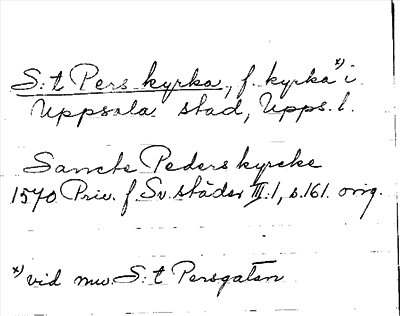 S:t Pers kyrka, f. kyrka *) i
Uppsala stad, Upps. l.
Sancte Peders kyrcke
1570 Priv. f Sv. städer III:1, s. 161. orig.
*) vid nuv. S:t Persgatan